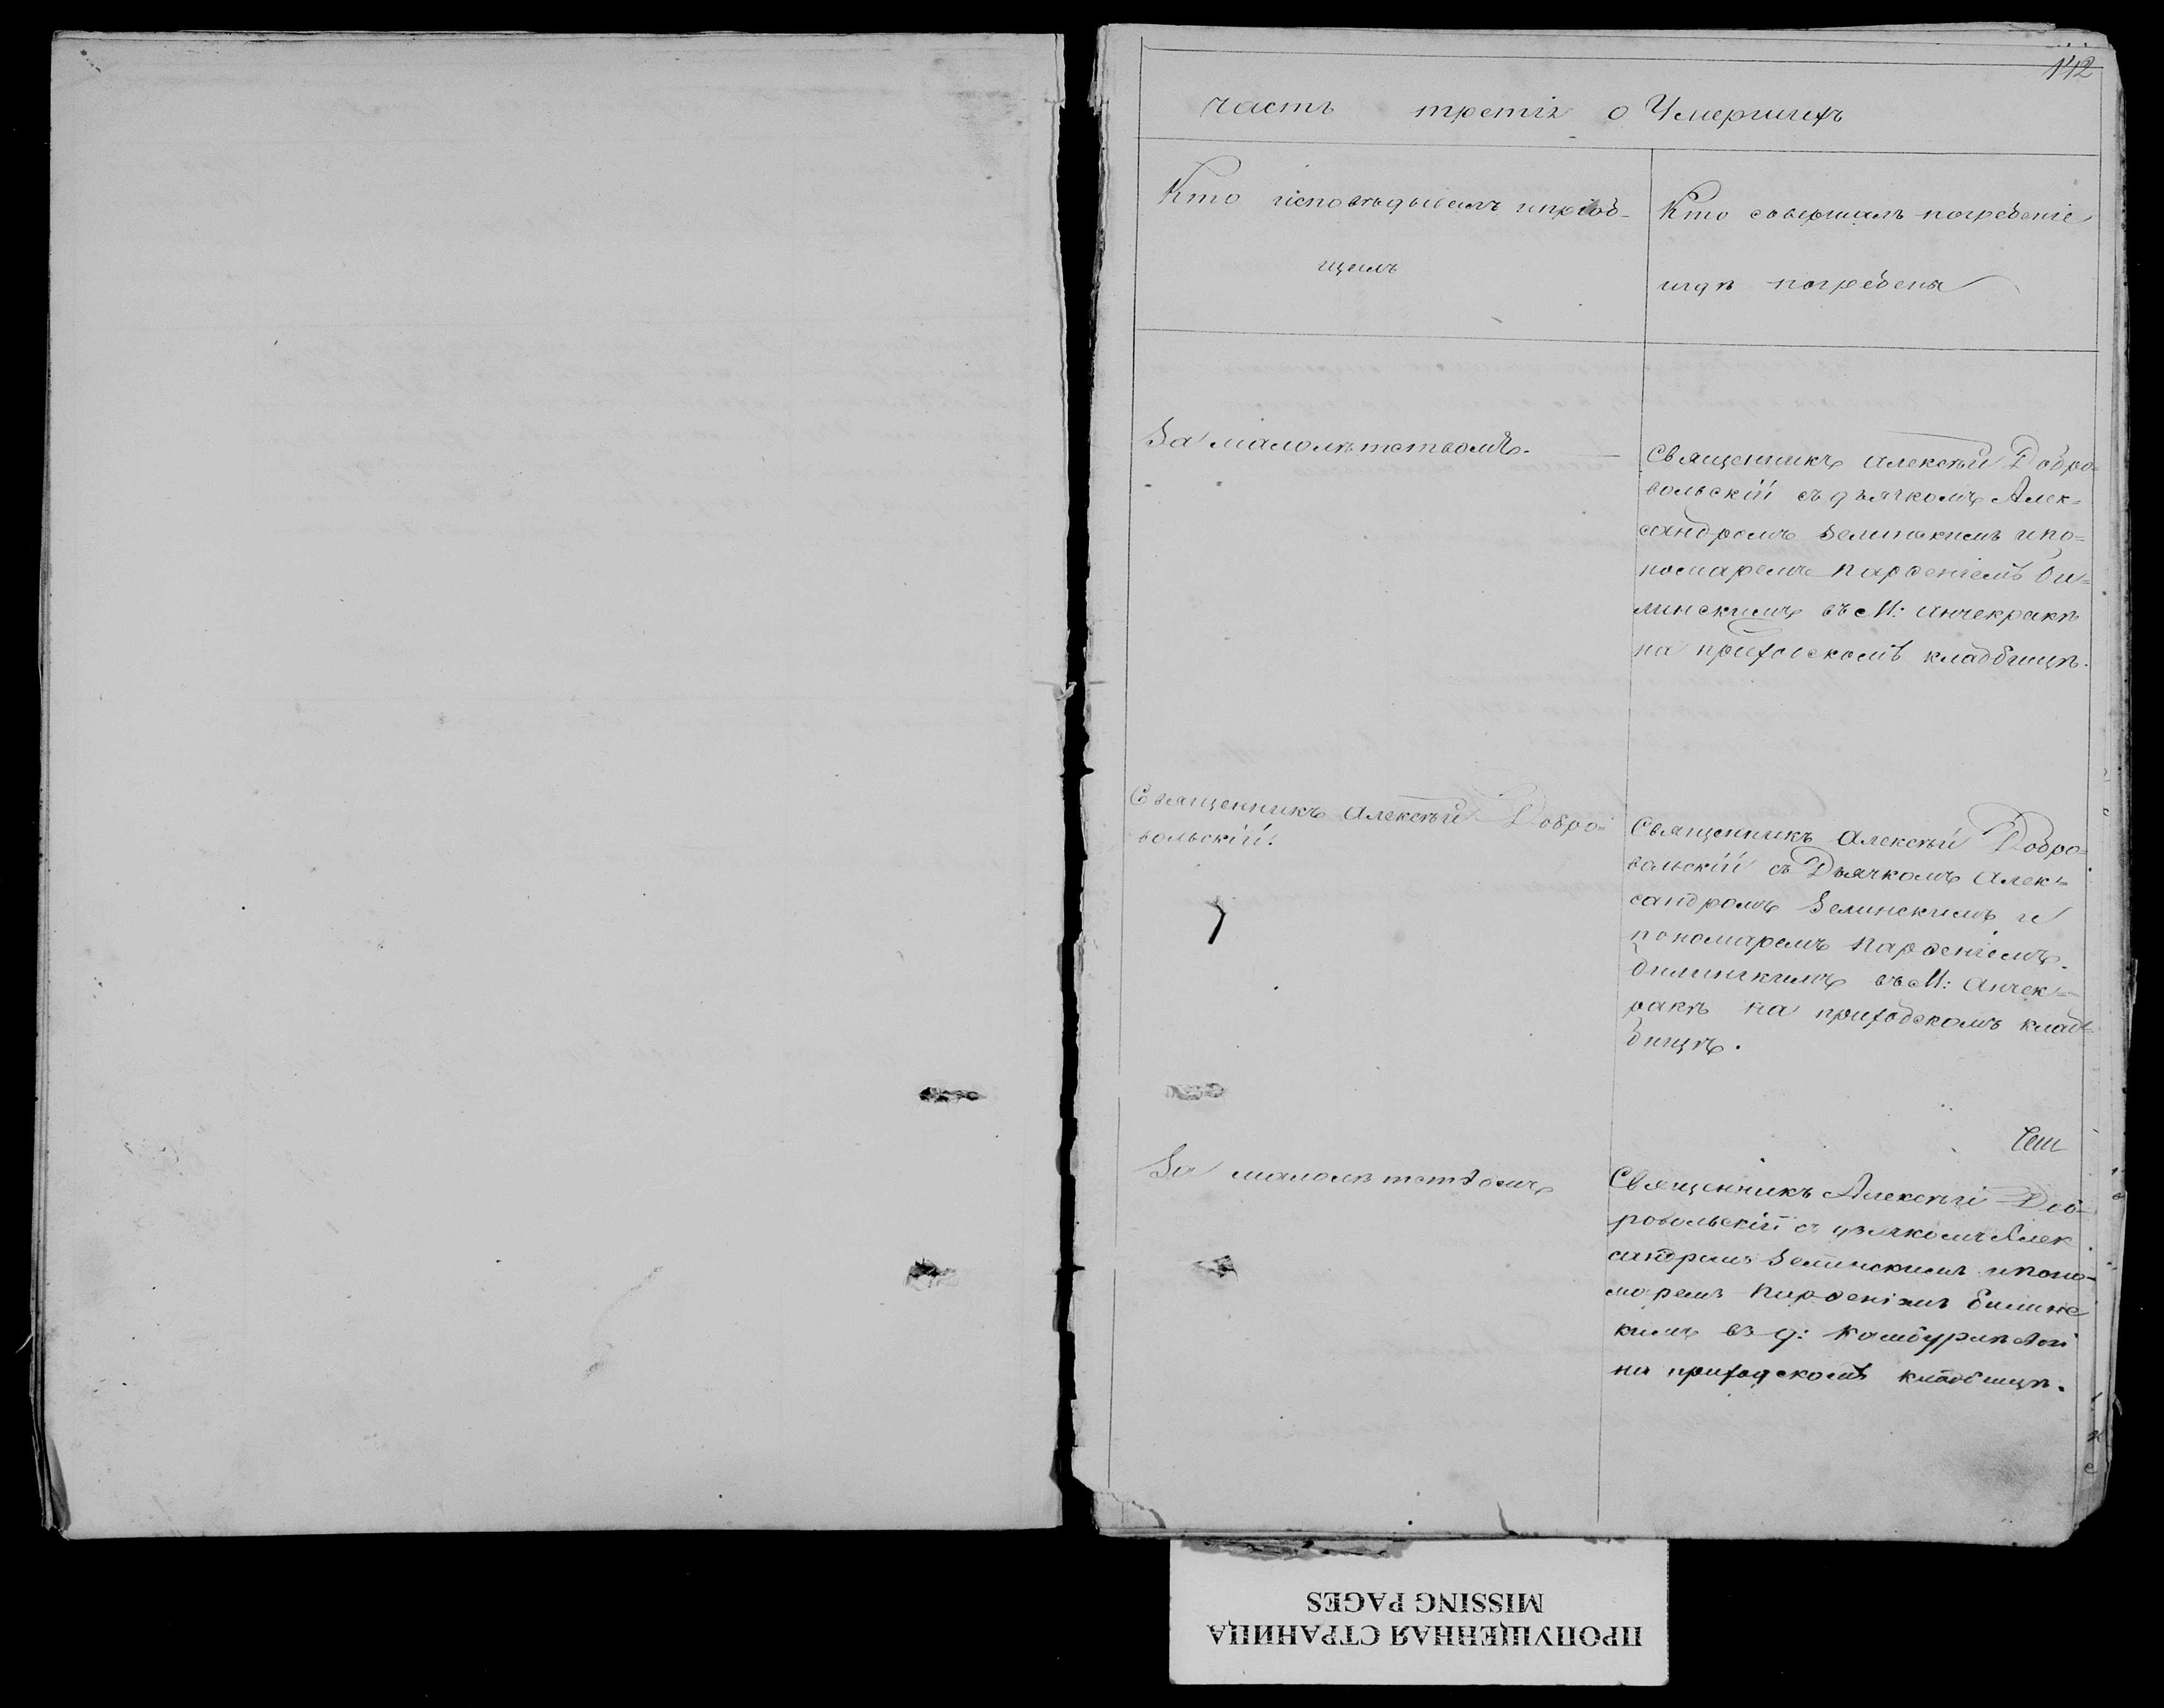 142
часть третія о Умершихъ
Кто исповѣдывалъ и пріоб-
щалъ
Кто совершалъ погребеніе
и гдѣ погребены
За малолѣтствомъ.
Священникъ Алексѣй Добро=
вольскій съ дьячкомъ Алек=
сандромъ Зелинскимъ и по=
номаремъ Парѳеніемъ Би=
линскимъ въ М: Анчекракѣ
на приходскомъ кладбищѣ.
Священникъ Алексѣй Добро=
вольскій.
Священникъ Алексѣй Добро=
вольскій съ Дьячкомъ Алек=
сандромъ Зелинскимъ и
пономаремъ Парѳеніемъ
Билинскимъ въ М: Анчек=
ракѣ на приходскомъ клад
бищѣ.
За малолѣтствомъ
Священникъ Алексѣй Доб-
ровольскій съ дьячкомъ Алек
сандромъ Зелинскимъ и поно-
маремъ Парѳеніемъ Билинс
кимъ въ д: Камбурлѣевой
на приходскомъ кладбищѣ.
ПРОПУЩЕННАЯ СТРАНИЦА
MISSING PAGES